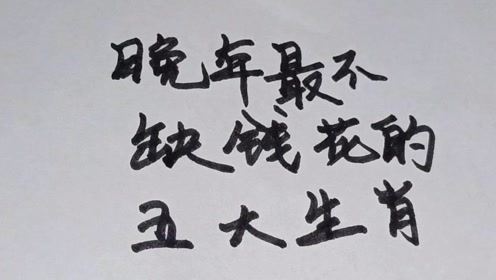 晚年最不
缺钱花的
五大生肖